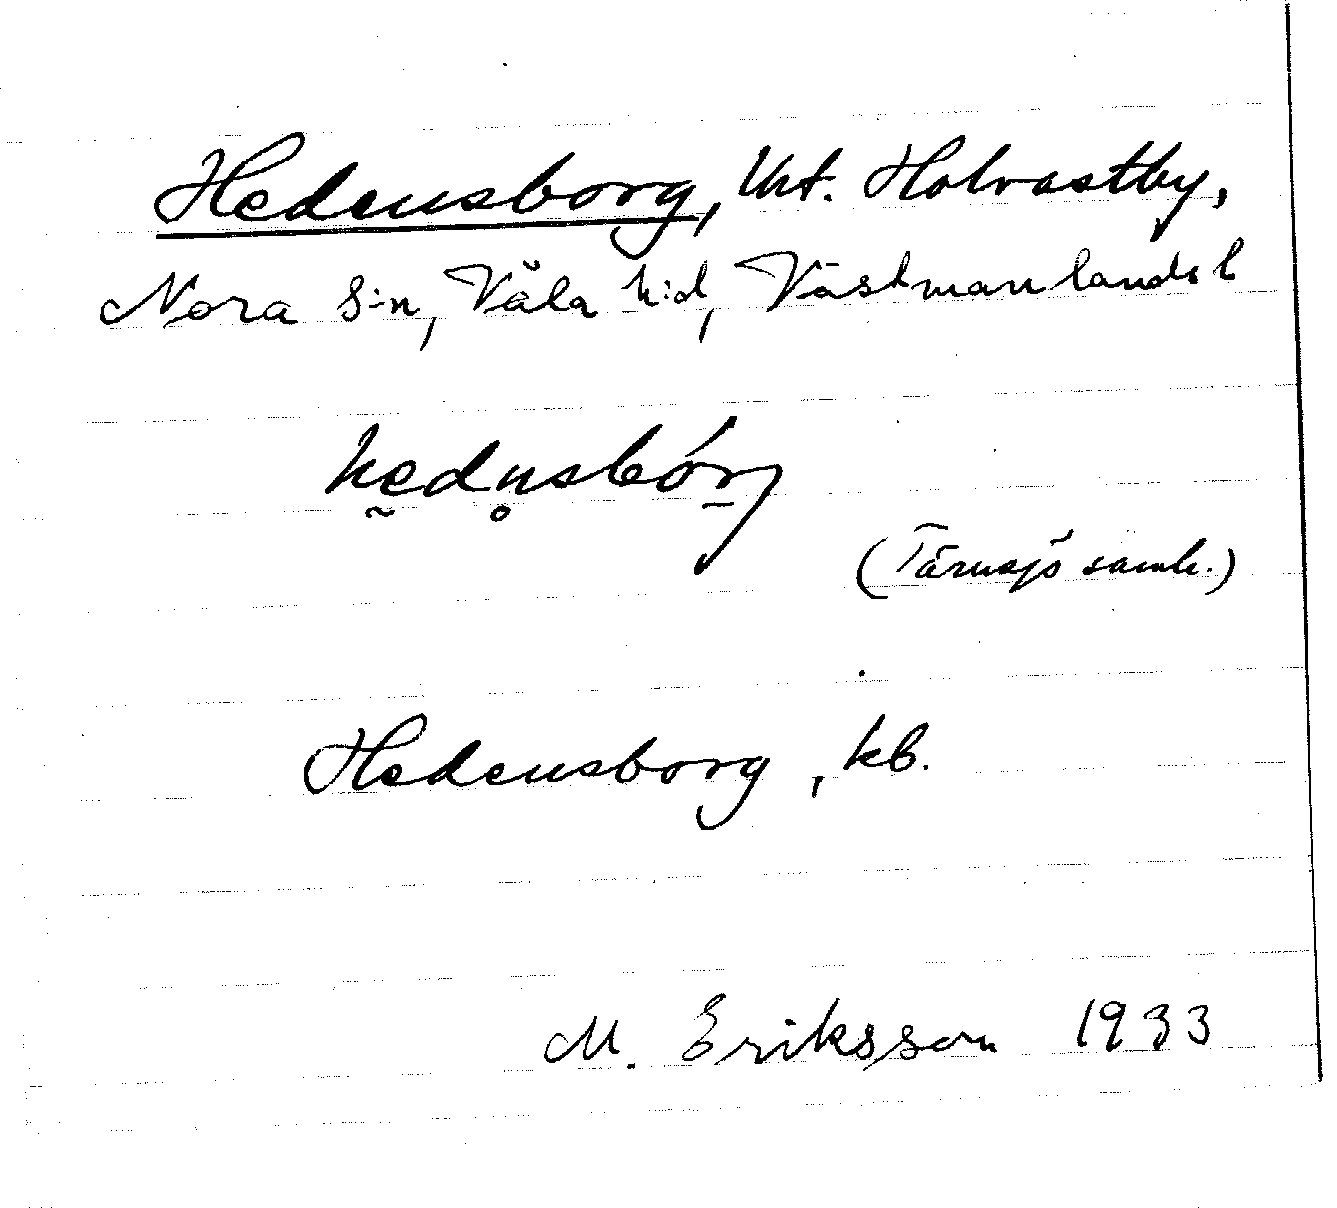 Hedensborg, Unt. Holvastby,
Nora s:n, Våla h:d, Västmanlands l
hedn̥sbórj
(Tärnsjö samh.)
Hedensborg, kb.
M. Eriksson 1933